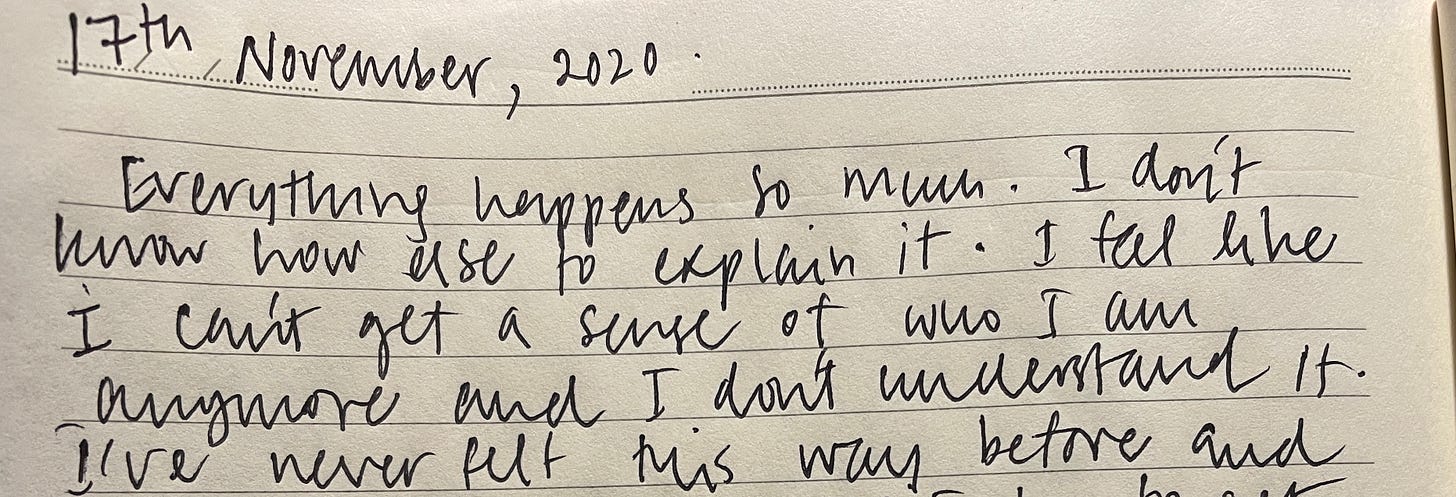 17th November, 2020.
Everything happens so much. I don't
know how else to explain it. I feel like
I can't get a sense of who I am
anymore and I don't understand it.
I've never felt this way before and